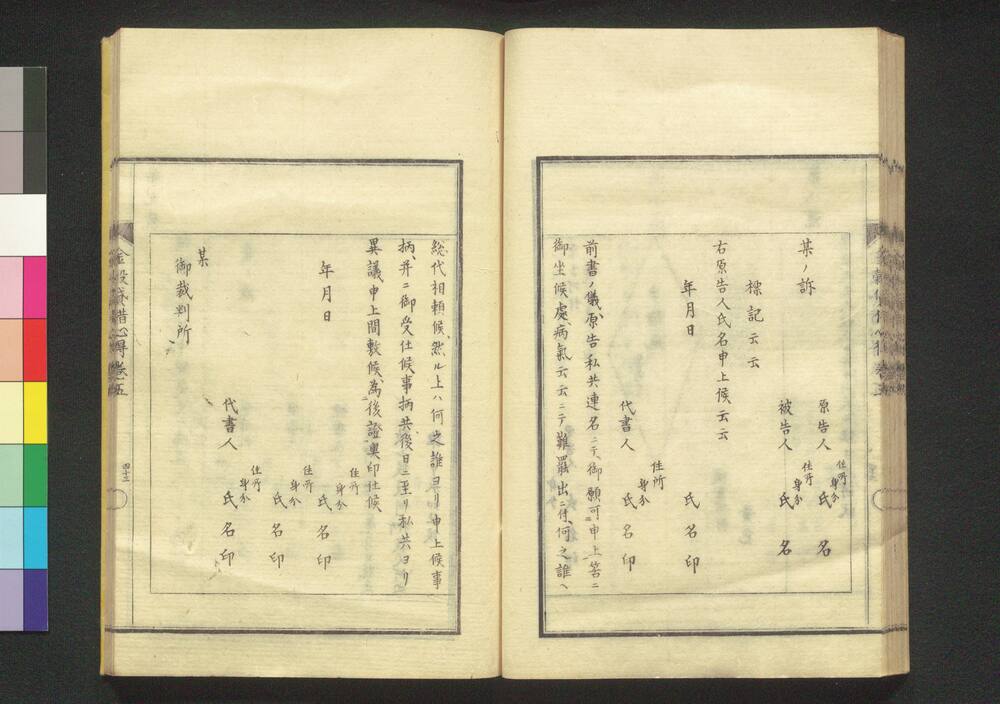 某ノ訴
住所
身分
原告人 氏名
住所
身分
被告人 氏名
標記云云
右原告人氏名申上候云云
年月日
氏名印
住所
身分
代書人 氏名印
前書ノ儀原告私共連名ニテ御願可申上筈ニ
御坐候處病氣云云ニテ難罷出ニ付何之誰ヘ
総代相頼候然ル上ハ何之誰ヨリ申上候事
柄并ニ御受仕候事柄共後日ニ至リ私共ヨリ
異議申上間敷候為後證奥印仕候
年月日
住所
身分
氏名印
住所
身分
氏名印
住所
身分
代書人 氏名印
某
御裁判所
金穀貸借心得 巻五
四十三